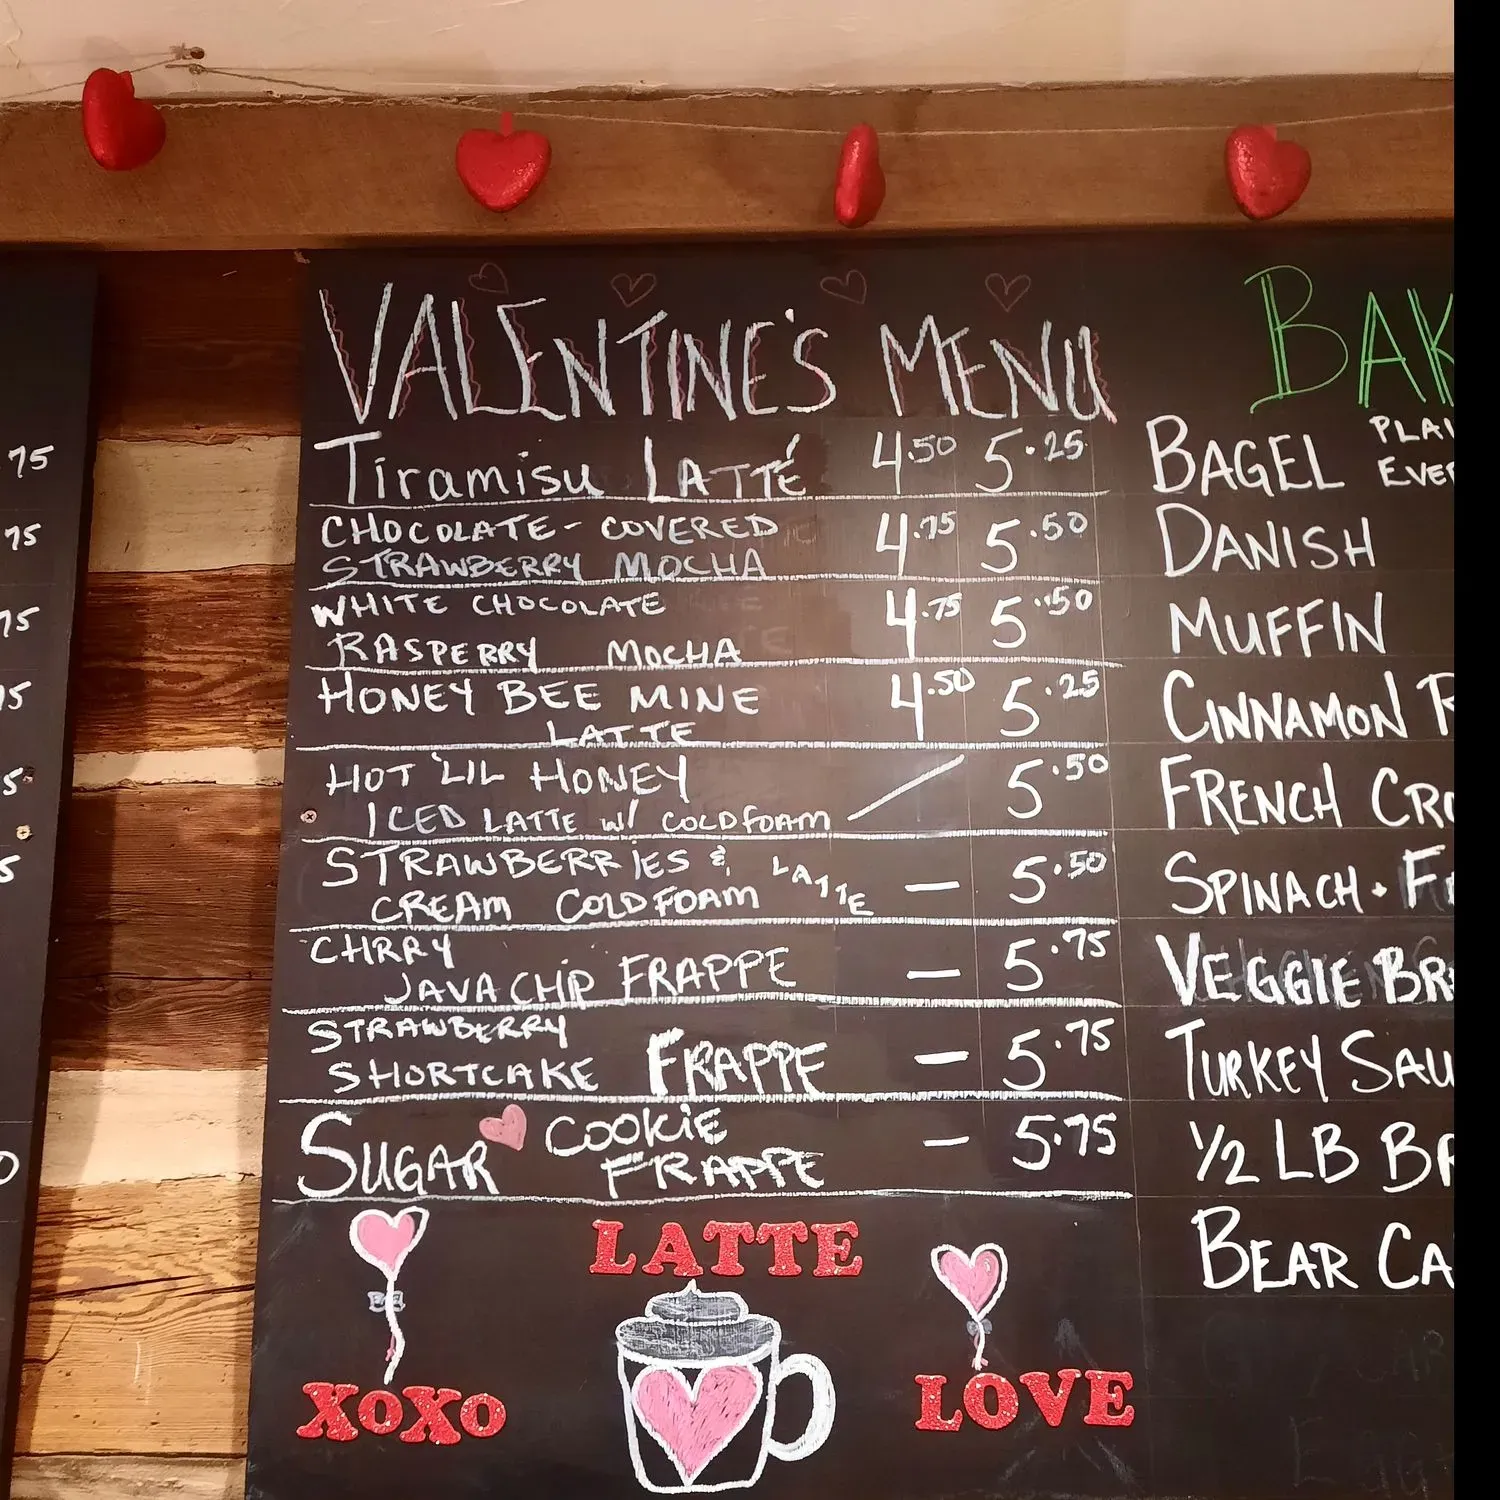 75
75
75
VALENTINE'S MENU
Tiramisu LATTÉ 4.50 5.25
CHOCOLATE- COVERED
STRAWBERRY MOCHA 4.75 5.50
WHITE CHOCOLATE
RASPERRY MOCHA 4.75 5.50
HONEY BEE MINE
LATTE 4.50 5.25
HOT 'LIL HONEY
ICED LATTE W/ COLDFOAM / 5.50
STRAWBERRIES & LATTE
CREAM COLDFOAM — 5.50
CHRRY
JAVA CHIP FRAPPE — 5.75
STRAWBERRY
SHORTCAKE FRAPPE — 5.75
SUGAR COOKIE
FRAPPE - 5.75
LATTE
XOXO
LOVE
BAK
BAGEL
DANISH
MUFFIN
CINNAMON R
FRENCH CRO
SPINACH
VEGGIE BR
TURKEY SAU
1/2 LB BR
BEAR CA